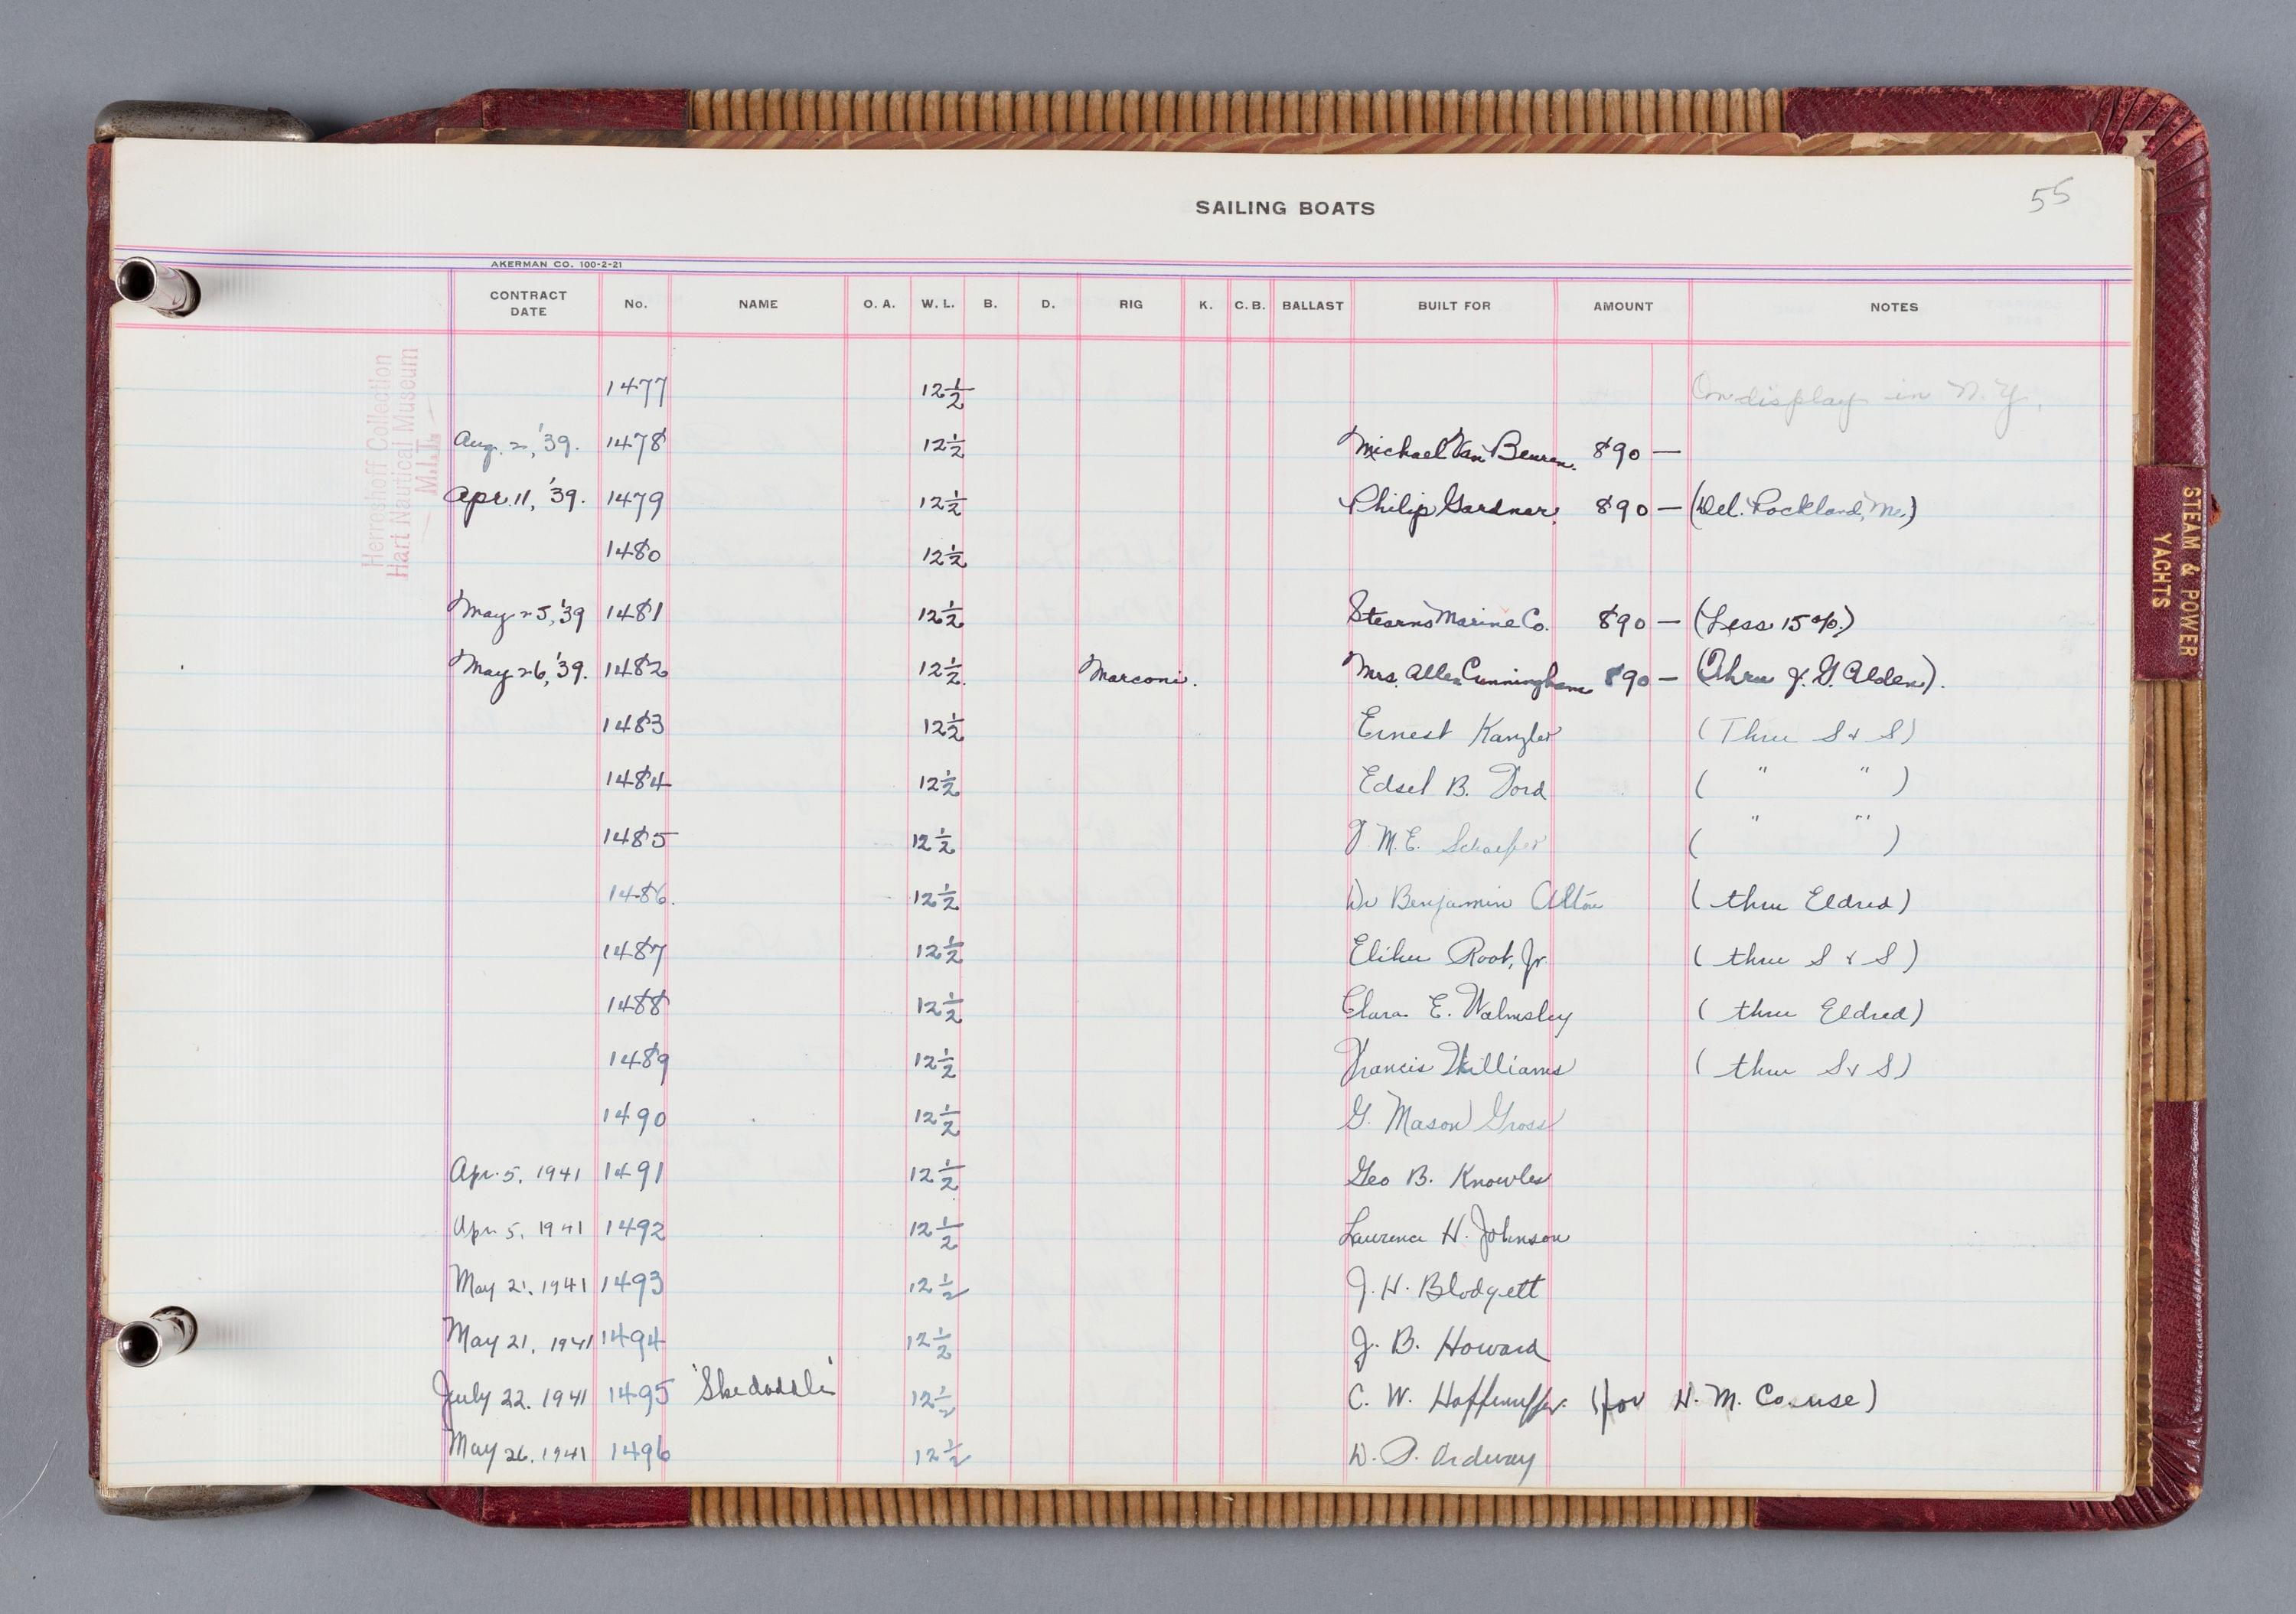 SAILING BOATS
55
AKERMAN CO. 100-2-21
CONTRACT DATE No. NAME O. A. W. L. B. D. RIG K. C. B. BALLAST BUILT FOR AMOUNT NOTES
1477 12 1/2 On display in N.Y.
Aug. 2, '39. 1478 12 1/2 Michael Van Beuren. 890 —
Apr. 11, '39. 1479 12 1/2 Philip Gardner. 890 — (Del. Rockland, Me.)
1480 12 1/2
May 25, '39 1481 12 1/2 Stearns Marine Co. 890 — (Less 15%.)
May 26, '39. 1482 12 1/2. Marconi. Mrs. Allen Cunningham 890 — (Thru J. G. Alden).
1483 12 1/2 Ernest Kanzler (Thru S & S)
1484 12 1/2 Edsel B. Ford ( " " )
1485 12 1/2 F. M. E. Schaefer ( " " )
1486. 12 1/2 Dr Benjamin Alton (thru Eldred)
1487 12 1/2 Elihu Root, Jr. (thru S & S)
1488 12 1/2 Clara E. Walmsley (thru Eldred)
1489 12 1/2 Francis Williams (thru S & S)
1490 12 1/2 G. Mason Gross
Apr. 5, 1941 1491 12 1/2 Geo B. Knowles
Apr 5, 1941 1492 12 1/2 Laurence H. Johnson
May 21, 1941 1493 12 1/2 J. H. Blodgett
May 21, 1941 1494 12 1/2 J. B. Howard
July 22, 1941 1495 'Skedaddle' 12 1/2 C. W. Haffenreffer (for H. M. Co. use)
May 26, 1941 1496 12 1/2 D. P. Ordway
Herreshoff Collection
Hart Nautical Museum
M.I.T.
STEAM & POWER
YACHTS